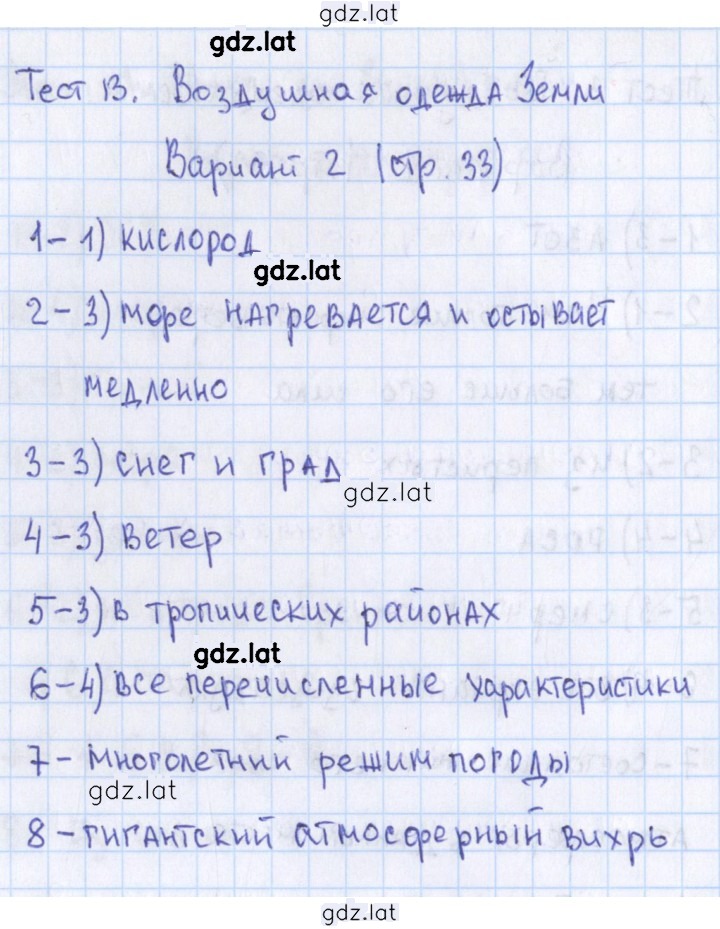 gdz.lat
gdz.lat
Тест 13. Воздушная одежда Земли
Вариант 2 (стр. 33)
1-1) кислород
gdz.lat
2-3) море нагревается и остывает
медленно
3-3) снег и град
gdz.lat
4-3) ветер
5-3) в тропических районах
gdz.lat
6-4) все перечисленные характеристики
7-многолетний режим погоды
gdz.lat
8-гигантский атмосферный вихрь
gdz.lat